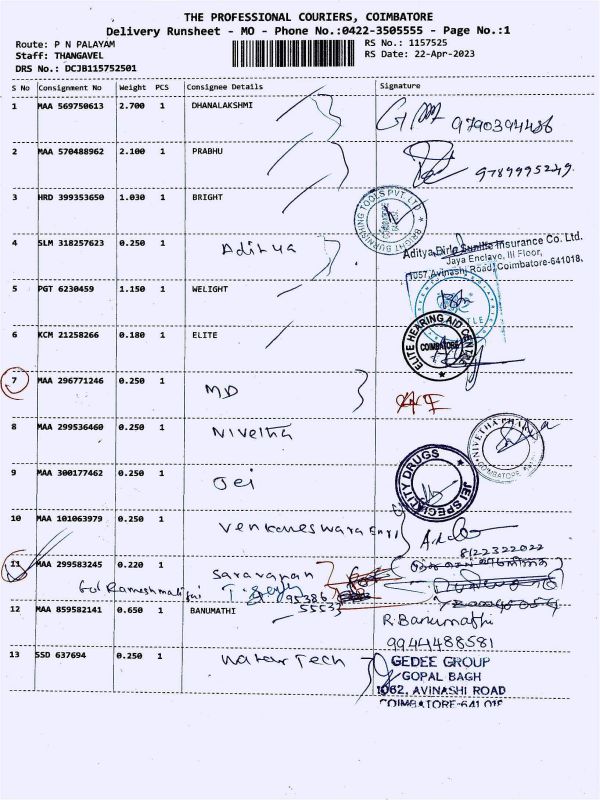 THE PROFESSIONAL COURIERS, COIMBATORE
Delivery Runsheet - MO - Phone No.:0422-3505555 - Page No.:1
Route: P N PALAYAM
RS No.: 1157525
Staff: THANGAVEL
RS Date: 22-Apr-2023
DRS No.: DCJB115752501
S No Consignment No Weight PCS Consignee Details Signature
1 MAA 569750613 2.700 1 DHANALAKSHMI
9790394486
2 MAA 570488962 2.100 1 PRABHU
9789995249.
3 HRD 399353650 1.030 1 BRIGHT
BRIGHT BURNISHING TOOLS PVT LTD
4 SLM 318257623 0.250 1 Aditya
Aditya Birla Sunlife Insurance Co. Ltd.
Jaya Enclave, III Floor,
1057, Avinashi Road, Coimbatore-641018.
5 PGT 6230459 1.150 1 WELIGHT
6 KCM 21258266 0.180 1 ELITE
ELITE HEARING AID CENTRE
COIMBATORE
7 MAA 296771246 0.250 1 MD
8 MAA 299536460 0.250 1 Nivetha
NIVETHA PHARMA
COIMBATORE
9 MAA 300177462 0.250 1 Jei
JEI SPECIALITY DRUGS
10 MAA 101063979 0.250 1 Venkateswara
8122322022
11 MAA 299583245 0.220 1 Saravanan
95386
5553
12 MAA 859582141 0.650 1 BANUMATHI
R.Banumathi
9944488581
13 SSD 637694 0.250 1 Water Tech
GEDEE GROUP
GOPAL BAGH
1062, AVINASHI ROAD
COIMBATORE-641 018